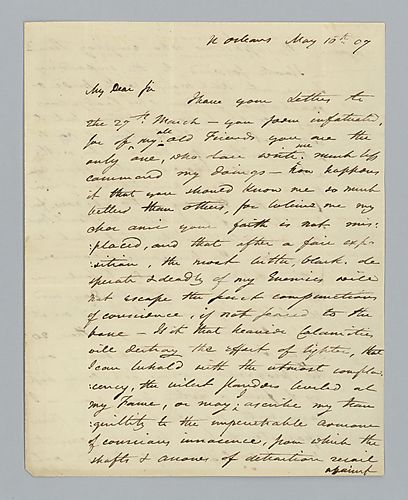 N Orleans May 10th. 07
My Dear Sir
I have your Letters to
the 27th. March — you seem infatuated,
for of all my old Friends you are the
only one, who dare write me much less
commend my doings — how happens
it that you should know me so much
better than others, for believe me my
cher ami your faith is not mis-
:placed, and that after a fair expo
:sition, the most bitter, black, de
sperate & deadly of my Enemies will
not escape the just compunctions
of conscience, if not seared to the
bone — Is it that heavier Calamities
will destroy the effect of lighter, that
I can behold with the utmost compla-
:cency, the vilest slanders leveled at
my Fame, or may I ascribe my tran
:quillity to the impenetrable armour
of conscious innocence, from which the
shafts & arrows of detraction recoil
against